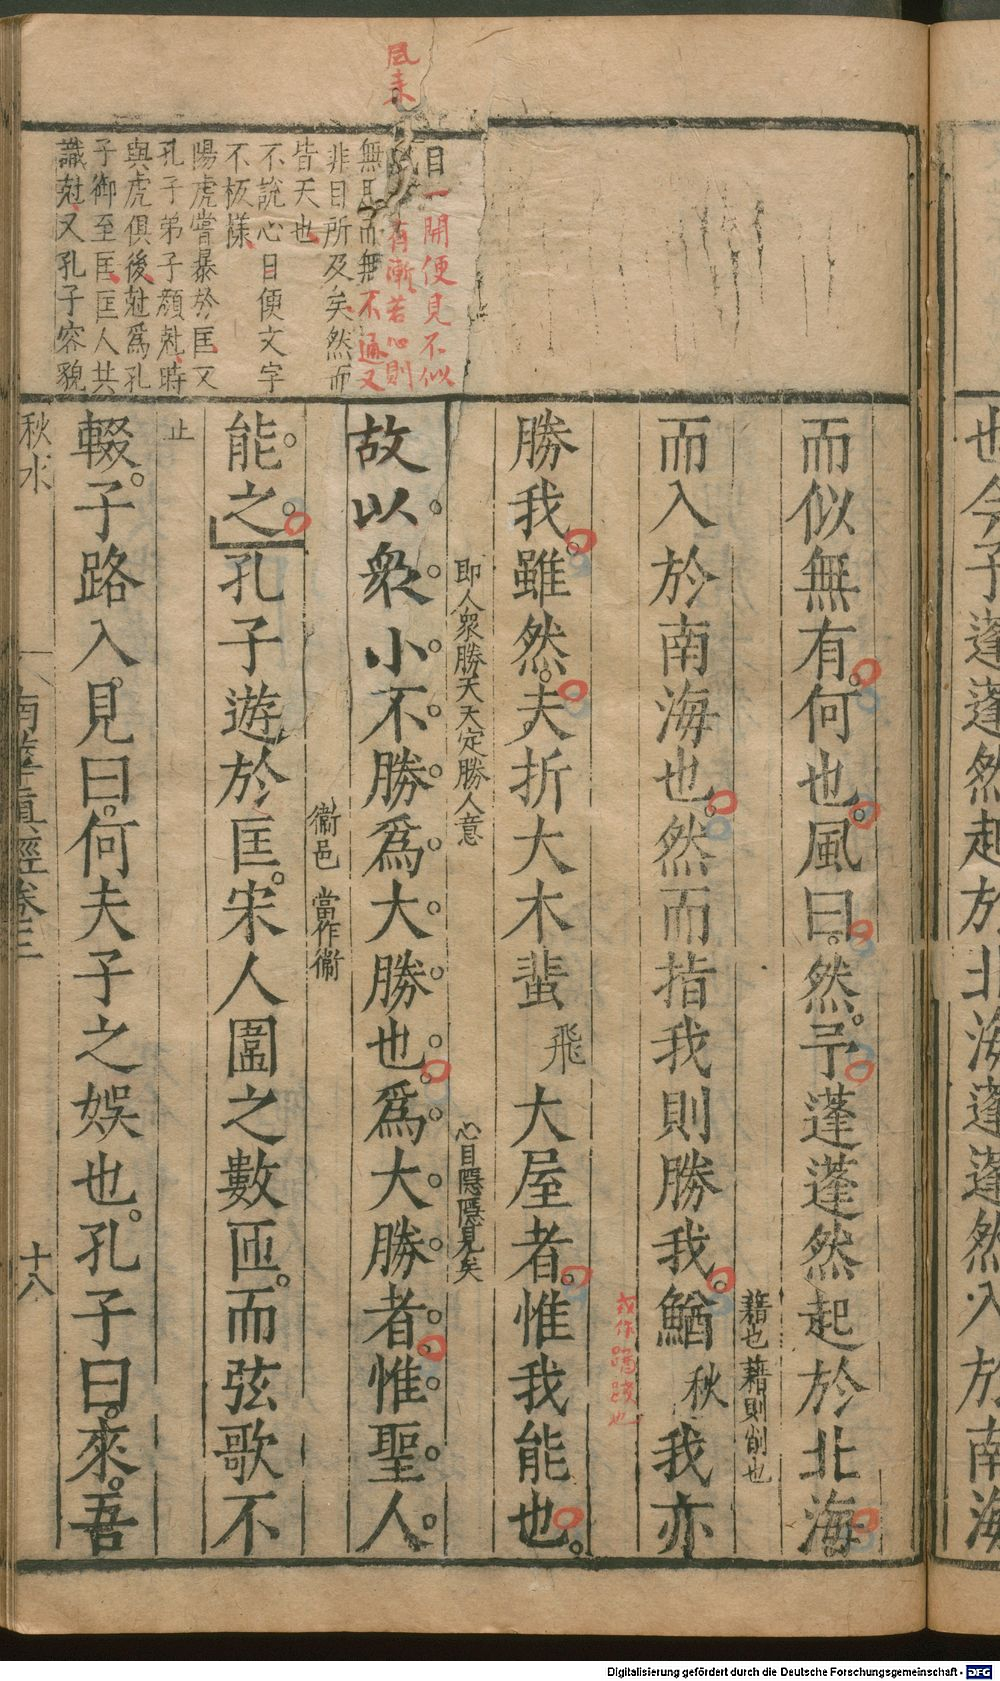 也今子蓬蓬然起於北海蓬蓬然入於南海
而似無有何也風曰然予蓬蓬然起於北海
藉也藉則削也
而入於南海也然而指我則勝我鰌秋我亦
或作蹹踐也
勝我雖然夫折大木蜚飛大屋者惟我能也
即人衆勝天天定勝人意
心目隱隱見矣
故以衆小不勝爲大勝也爲大勝者惟聖人
衞邑 當作衞
能之孔子遊於匡宋人圍之數匝而弦歌不
止
輟子路入見曰何夫子之娛也孔子曰來吾
目一開便見不似
有漸若心則
無且而無不通又
非目所及矣然而
皆天也
不說心目便文字
不板様
陽虎嘗暴於匡又
孔子弟子顔尅時
與虎俱後尅爲孔
子御至匡匡人共
識尅又孔子容貌
秋水
南華眞經卷三
十八
Digitalisierung gefördert durch die Deutsche Forschungsgemeinschaft - DFG